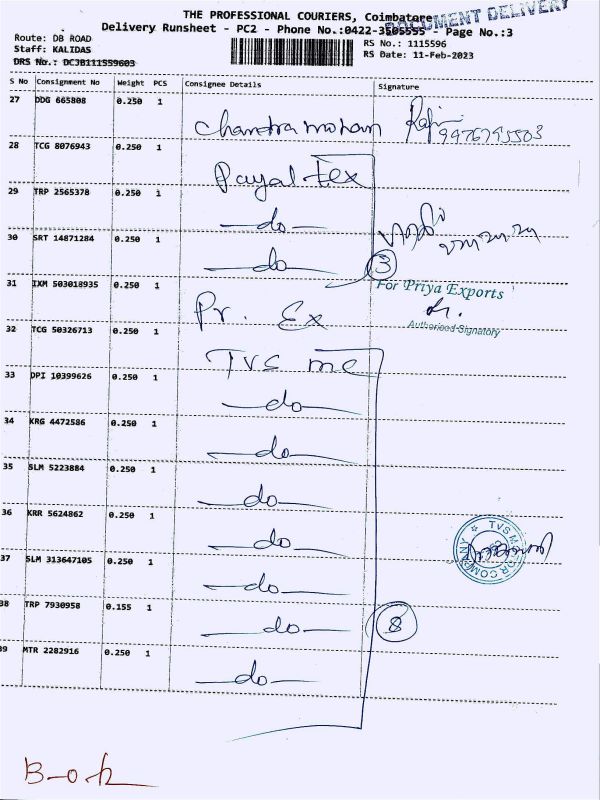 THE PROFESSIONAL COURIERS, Coimbatore
DOCUMENT DELIVERY
Delivery Runsheet - PC2 - Phone No.:0422-3505555 - Page No.:3
Route: DB ROAD
Staff: KALIDAS
DRS No.: DCJB111559603
RS No.: 1115596
RS Date: 11-Feb-2023
S No Consignment No Weight PCS Consignee Details Signature
27 DDG 665808 0.250 1
Chandra mohan
28 TCG 8076943 0.250 1
Payal tex
29 TRP 2565378 0.250 1
do
30 SRT 14871284 0.250 1
do 3
31 IXM 503018935 0.250 1
For Priya Exports
Pr. Ex
Authorised Signatory
32 TCG 50326713 0.250 1
TVS mc
33 DPI 10399626 0.250 1
do
34 KRG 4472586 0.250 1
do
35 SLM 5223884 0.250 1
do
36 KRR 5624862 0.250 1
do
TVS MOTOR COMPANY
37 SLM 313647105 0.250 1
do
38 TRP 7930958 0.155 1
do 8
39 MTR 2282916 0.250 1
do